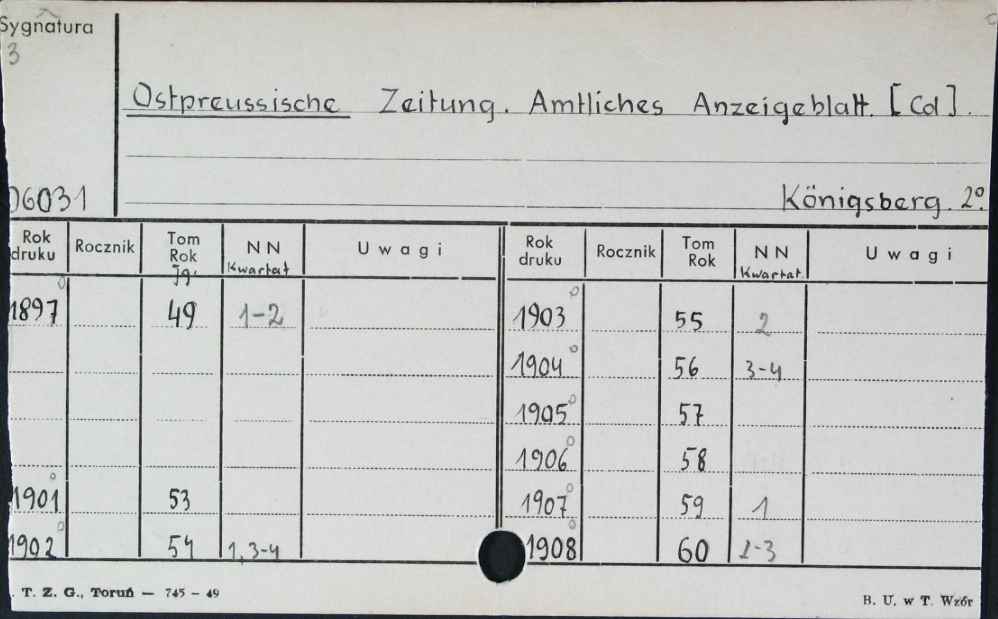 Sygnatura
3
Ostpreussische Zeitung. Amtliches Anzeigeblatt. [Cd].
06031
Königsberg. 2º.
Rok druku Rocznik Tom Rok Jg. NN Kwartał Uwagi Rok druku Rocznik Tom Rok NN Kwartał Uwagi
1897 49 1-2 1903 55 2
1904 56 3-4
1905 57
1906 58
1901 53 1907 59 1
1902 54 1,3-4 1908 60 2-3
T. Z. G., Toruń — 745 – 49
B. U. w T. Wzór